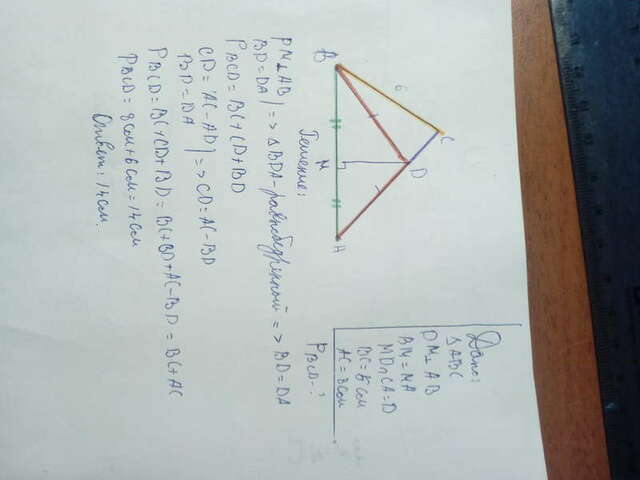 Дано:
ΔABC
DM⊥AB
BM=MA
MD∩CA=D
BC=6см
AC=8см
P BCD-?
B
6
C
D
M
A
Решение:
DM⊥AB
BD=DA } => ΔBDA-равнобедренный => BD=DA
P BCD=BC+CD+BD
CD=AC-AD
BD=DA } => CD=AC-BD
P BCD=BC+CD+BD=BC+BD+AC-BD=BC+AC
P BCD=8см+6см=14см
Ответ: 14см.